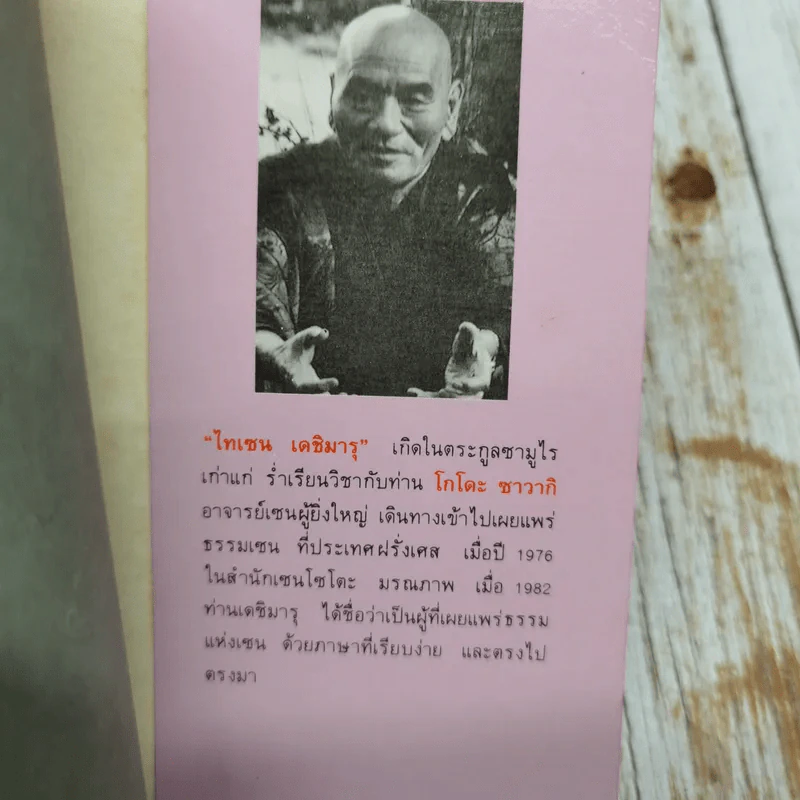 “ไทเซน เดชิมารุ” เกิดในตระกูลซามูไร
เก่าแก่ ร่ำเรียนวิชากับท่าน โกโดะ ซาวากิ
อาจารย์เซนผู้ยิ่งใหญ่ เดินทางเข้าไปเผยแพร่
ธรรมเซน ที่ประเทศฝรั่งเศส เมื่อปี 1976
ในสำนักเซนโซโตะ มรณภาพ เมื่อ 1982
ท่านเดชิมารุ ได้ชื่อว่าเป็นผู้ที่เผยแพร่ธรรม
แห่งเซน ด้วยภาษาที่เรียบง่าย และตรงไป
ตรงมา